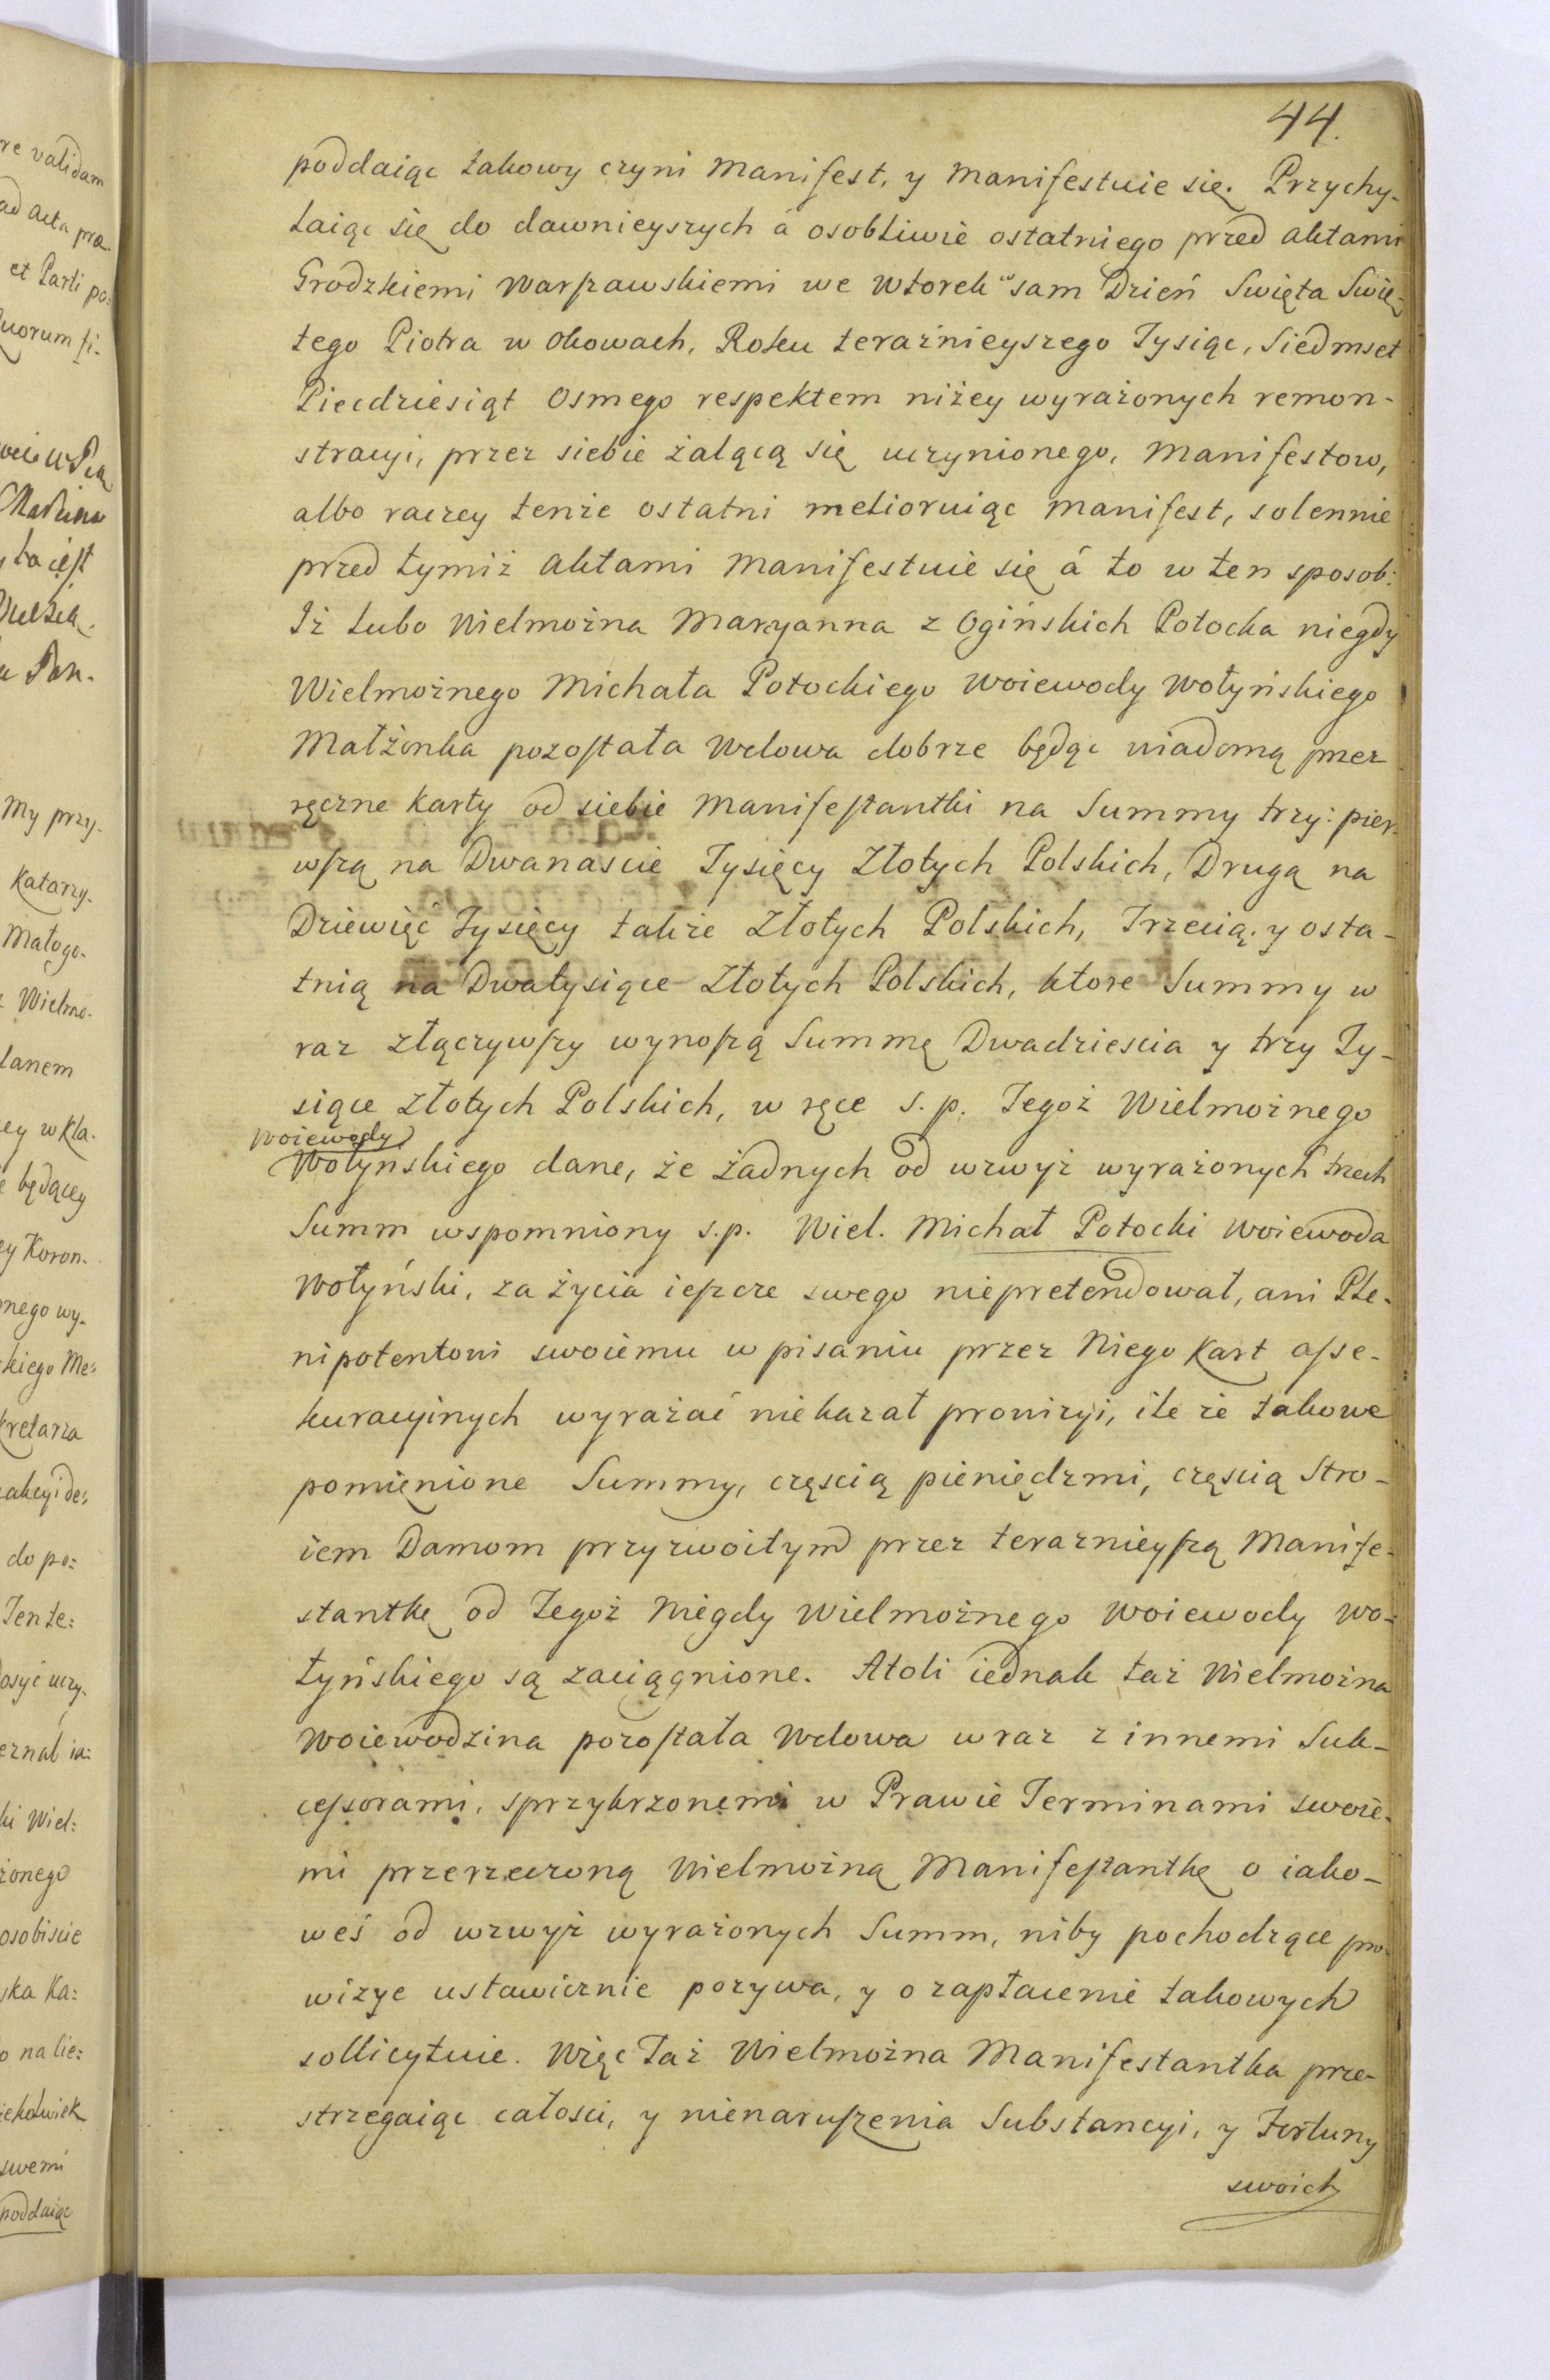 44.
poddaiąc takowy czyni Manifest, y Manifestuie się. Przychy-
laiąc się do dawnieyszych á osobliwie ostatniego przed Aktami
Grodzkiemi Warszawskiemi we Wtorek w sam Dzień Swięta Swię-
tego Piotra w Okowach, Roku teraźnieyszego Tysiąc, Siedmset
Piecdziesiąt Osmego respektem niżey wyrażonych remon-
stracyi, przez siebie żalącą się uczynionego, Manifestow,
albo raczey tenże ostatni melioruiąc Manifest, solennie
przed tymiż Aktami Manifestuie się á to w ten sposob:
Iż lubo Wielmożna Maryanna z Ogińskich Potocka niegdy
Wielmożnego Michała Potockiego Woiewody Wołyńskiego
Małżonka pozostała Wdowa dobrze będąc uiadomą przez
ręczne Karty od siebie Manifestantki na Summy trzy: pier-
wszą na Dwanascie Tysięcy Złotych Polskich, Drugą na
Dziewięć Tysięcy także Złotych Polskich, Trzecią y osta-
tnią na Dwatysiące Złotych Polskich, ktore Summy w
raz złączywszy wynoszą Summę Dwadziescia y trzy Ty-
siące Złotych Polskich, w ręce s. p. Tegoż Wielmożnego
Woiewody
Wołyńskiego dane, że żadnych od wzwyż wyrażonych trzech
Summ wspomniony s.p. Wiel. Michał Potocki Woiewoda
Wołyński, za życia ieszcze swego niepretendował, ani Ple-
nipotentowi swoiemu w pisaniu przez Niego Kart asse-
kuracyinych wyrażać niekazał prowizyi, ile że takowe
pomienione Summy, częscią pieniędzmi, częscią Stro-
iem Damom przyzwoitym przez terazniejszą Manife-
stantkę od Tegoż Niegdy Wielmożnego Woiewody Wo-
łyńskiego są zaciągnione. Atoli iednak taż Wielmożna
Woiewodzina pozostała Wdowa wraz z innemi Suk-
cessorami, sprzykrzonemi w Prawie Terminami swoie-
mi przerzeczoną Wielmożną Manifestantkę o iako-
weś od wzwyż wyrażonych Summ, niby pochodzące pro-
wizye ustawicznie pozywa, y o zapłacenie takowych
sollicytuie. Więc Taż Wielmożna Manifestantka prze-
strzegaiąc całosci, y nienaruszenia Substancyi, y Fortuny
swoich